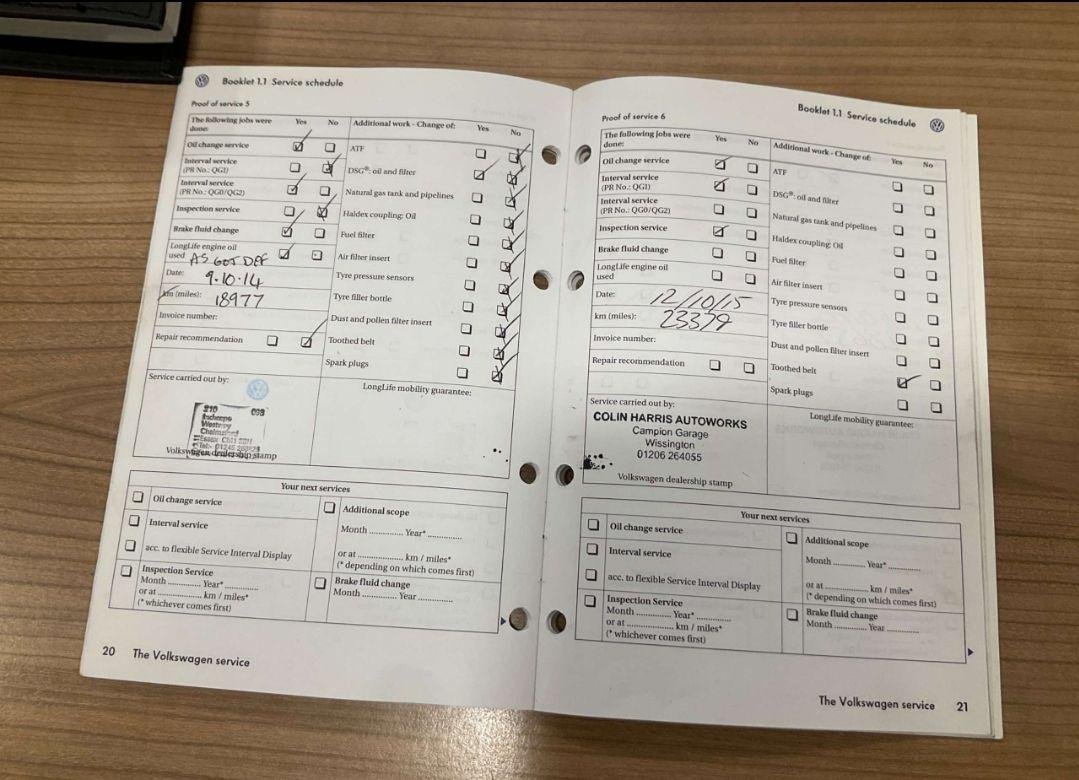 Booklet 1.1 Service schedule
Proof of service 5
The following jobs were done:
Yes No
Oil change service
Interval service
(PR No.: QG1)
Interval service
(PR No.: QG0/QG2)
Inspection service
Brake fluid change
LongLife engine oil
used AS GOT DEF
Date: 9.10.14
km (miles): 18977
Invoice number:
Repair recommendation
Additional work - Change of: Yes No
ATF
DSG®: oil and filter
Natural gas tank and pipelines
Haldex coupling: Oil
Fuel filter
Air filter insert
Tyre pressure sensors
Tyre filler bottle
Dust and pollen filter insert
Toothed belt
Spark plugs
Service carried out by:
LongLife mobility guarantee:
Westway
Chelmsford
Volkswagen dealership stamp
Your next services
Oil change service
Interval service
acc. to flexible Service Interval Display
Inspection Service
Month ............ Year* ............
or at ............... km / miles*
(* whichever comes first)
Additional scope
Month ............ Year* ............
or at ............... km / miles*
(* depending on which comes first)
Brake fluid change
Month ............ Year ............
20 The Volkswagen service
Booklet 1.1 Service schedule
Proof of service 6
The following jobs were
done:
Yes No
Oil change service
Interval service
(PR No.: QG1)
Interval service
(PR No.: QG0/QG2)
Inspection service
Brake fluid change
LongLife engine oil
used
Date: 12/10/15
km (miles): 23379
Invoice number:
Repair recommendation
Additional work - Change of: Yes No
ATF
DSG®: oil and filter
Natural gas tank and pipelines
Haldex coupling: Oil
Fuel filter
Air filter insert
Tyre pressure sensors
Tyre filler bottle
Dust and pollen filter insert
Toothed belt
Spark plugs
Service carried out by:
LongLife mobility guarantee:
COLIN HARRIS AUTOWORKS
Campion Garage
Wissington
01206 264055
Volkswagen dealership stamp
Your next services
Oil change service
Interval service
acc. to flexible Service Interval Display
Inspection Service
Month ............ Year* ............
or at ............... km / miles*
(* whichever comes first)
Additional scope
Month ............ Year* ............
or at ............... km / miles*
(* depending on which comes first)
Brake fluid change
Month ............ Year ............
The Volkswagen service 21